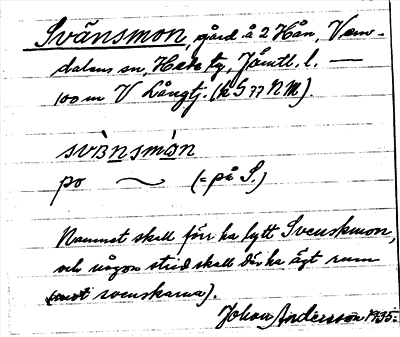 Svänsmon, gård å 2 Hån, Vem-
dalens sn, Hede tg, Jämtl. l. —
100 m V Långtj. (k G 77 NM).
svänsmòn
po ~ (= på S.)
Namnet skall förr ha lytt Svenskmon,
och någon strid skall där ha ägt rum
(mot svenskarna).
Johan Andersson 1935.